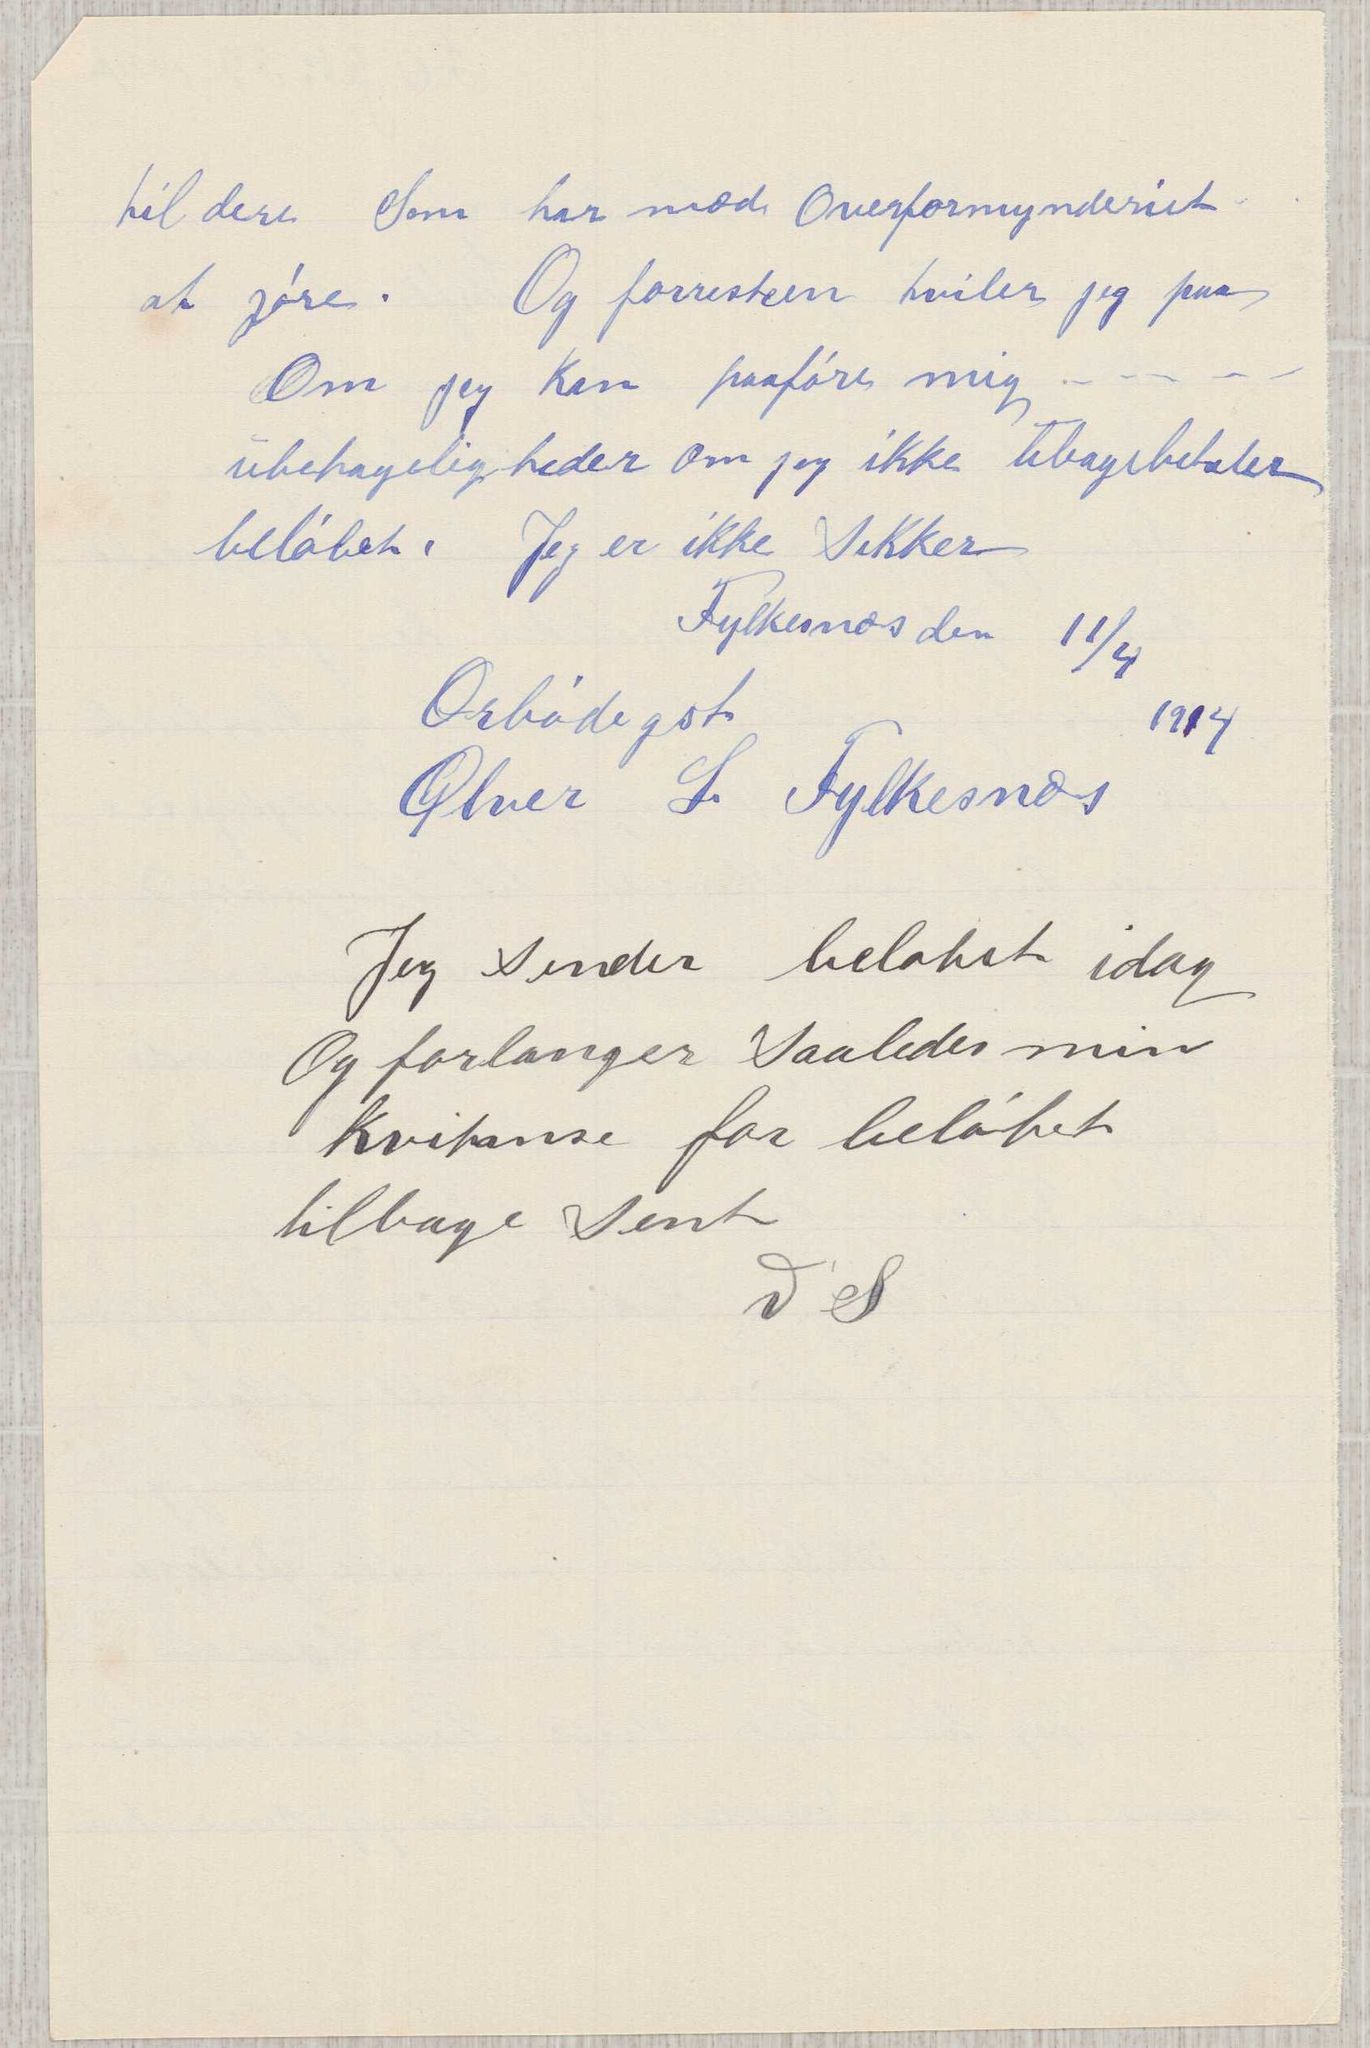 til dere Som har mæd Overformynderiet
at gjóre. Og forresten tviler jeg paa
Om jeg Kan paafóre mig - - - - -
ubehageligheder om jeg ikke tilbagebetaler
belóbet. Jeg er ikke Sikker
Fylkesnæs den 11/4
1914
Ærbódigst
Ølver L. Fylkesnæs
Jeg Sender belobet idag
Og forlanger Saaledes min
Kvitanse for belóbet
tilbage Sent
D S